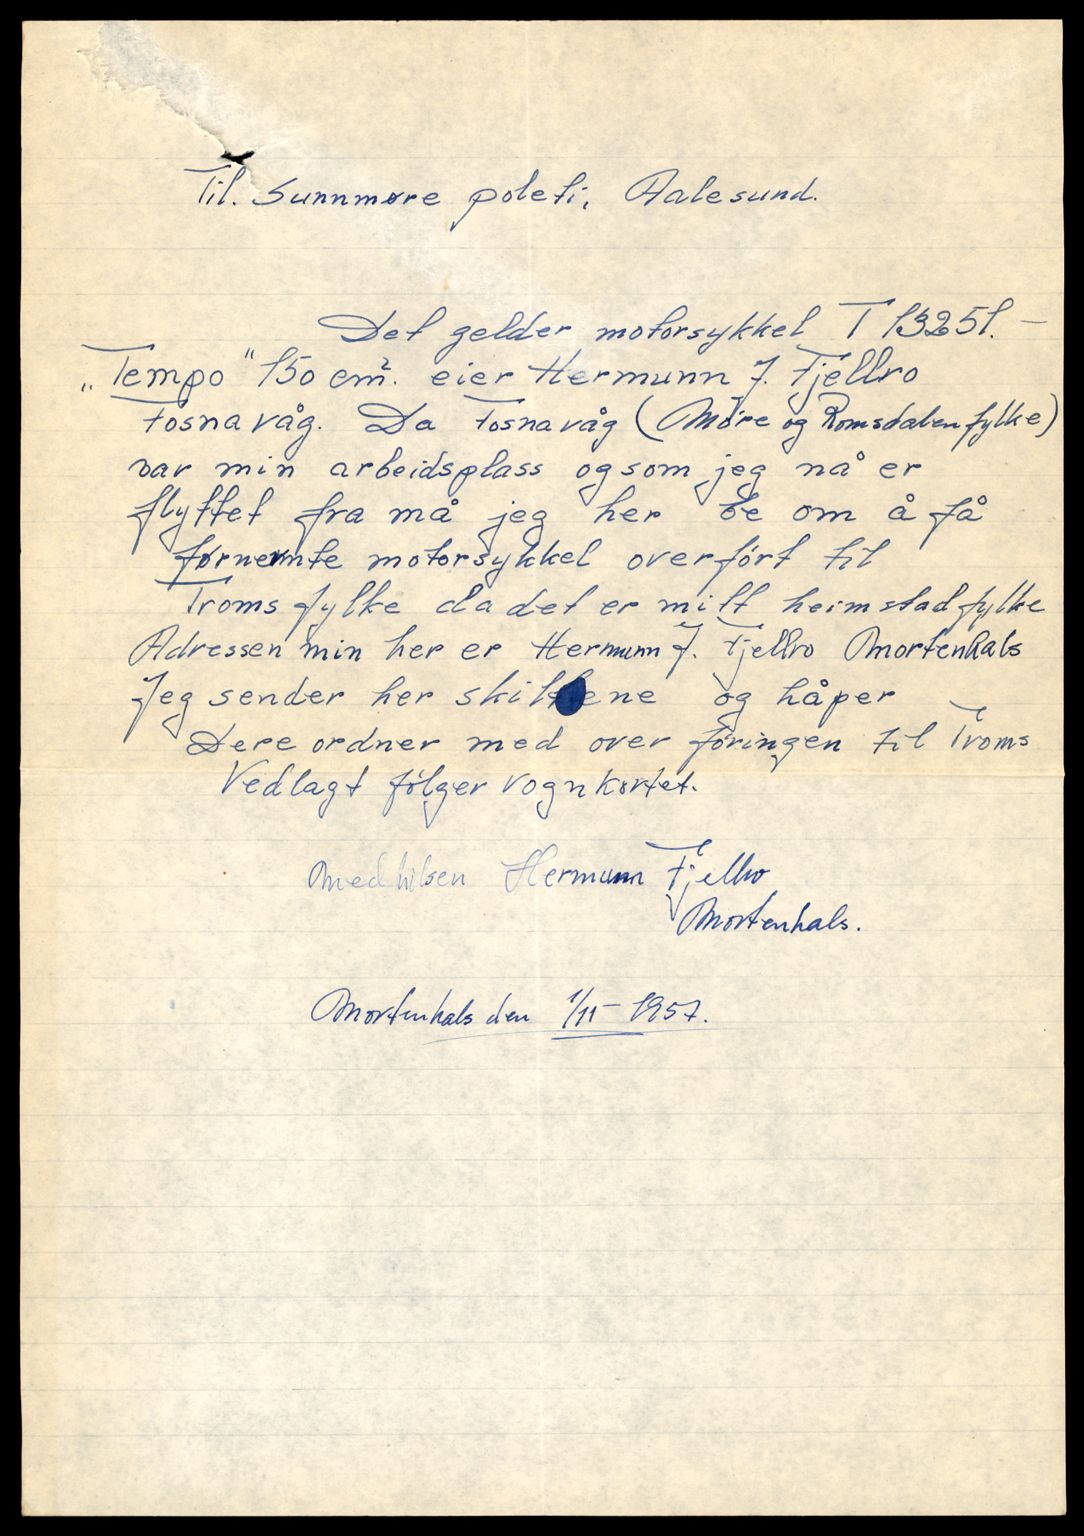 Til. Sunnmøre poleti, Aalesund.
Det gelder motorsykkel T 13251. —
„Tempo" 150 cm². eier Hermunn J. Fjellro
Fosnavåg. Da Fosnavåg (Møre og Romsdalen fylke)
var min arbeidsplass og som jeg nå er
flyttet fra må jeg her be om å få
førnemnte motorsykkel overført til
Troms fylke da det er mitt heimstadfylke
Adressen min her er Hermunn J. Fjellro Mortenhals
Jeg sender her skiltene og håper
Dere ordner med over føringen til Troms
Vedlagt følger vognkortet.
Med hilsen Hermunn Fjellro
Mortenhals.
Mortenhals den 1/11 – 1957.